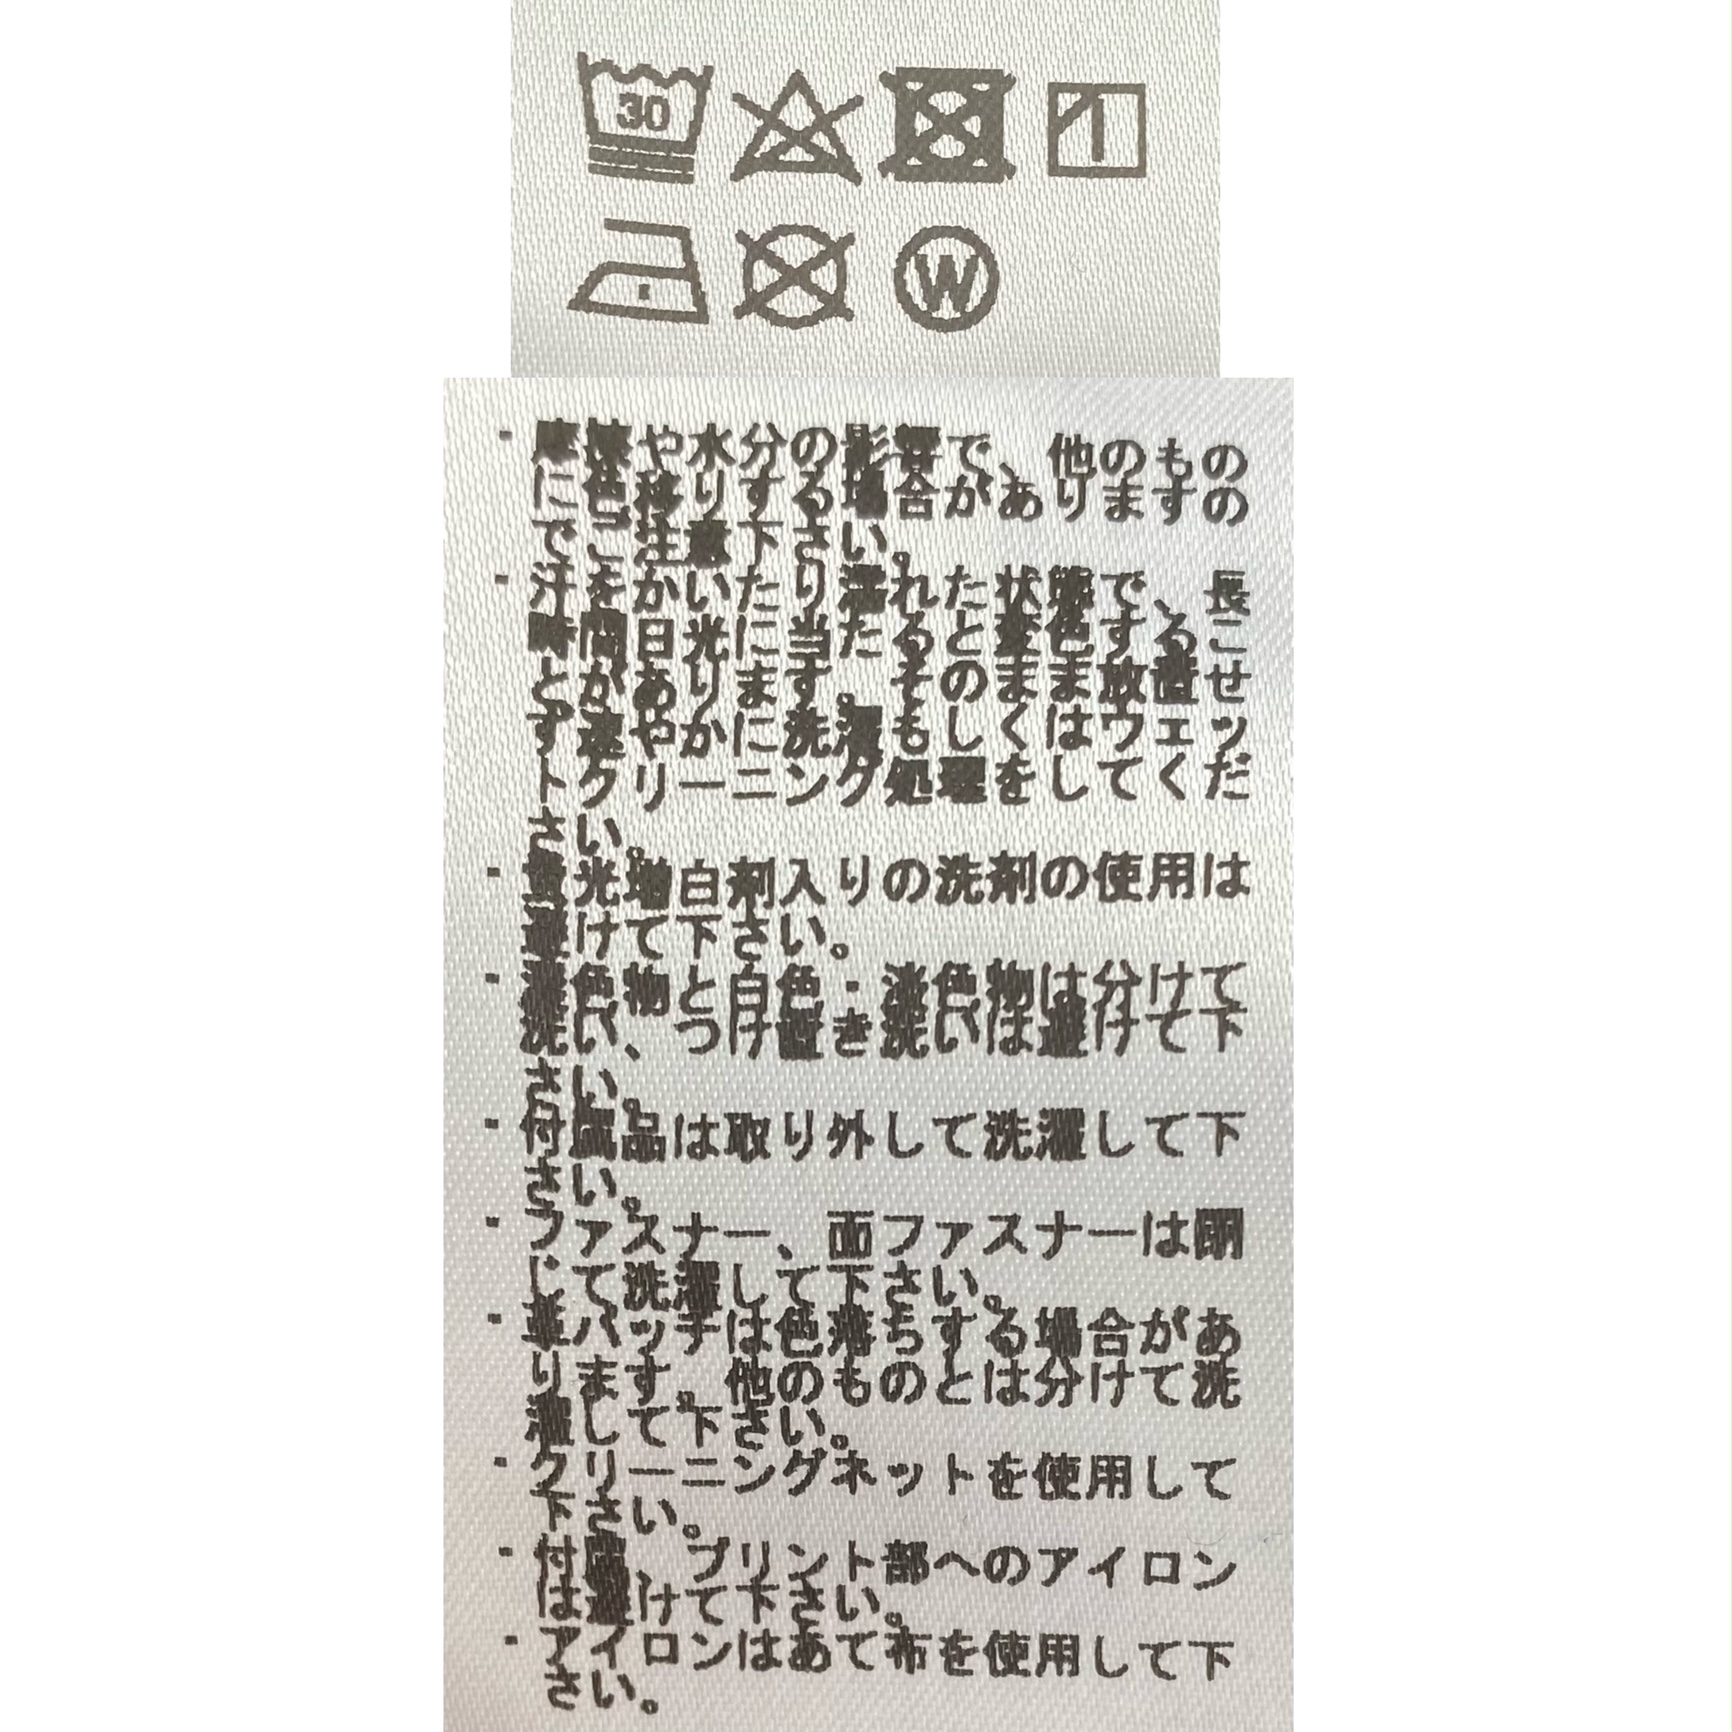 30
W
・摩擦や水分の影響で、他のもの
に色移りする場合がありますの
でご注意下さい。
・汗をかいたり濡れた状態で、長
時間日光に当たると変色するこ
とがあります。そのまま放置せ
ず速やかに洗濯もしくはウエッ
トクリーニング処理をしてくだ
さい。
・蛍光増白剤入りの洗剤の使用は
避けて下さい。
・濃色物と白色・淡色物は分けて
洗い、つけ置き洗いは避けて下
さい。
・付属品は取り外して洗濯して下
さい。
・ファスナー、面ファスナーは閉
じて洗濯して下さい。
・革パッチは色落ちする場合があ
ります。他のものとは分けて洗
濯して下さい。
・クリーニングネットを使用して
下さい。
・付属、プリント部へのアイロン
は避けて下さい。
・アイロンはあて布を使用して下
さい。